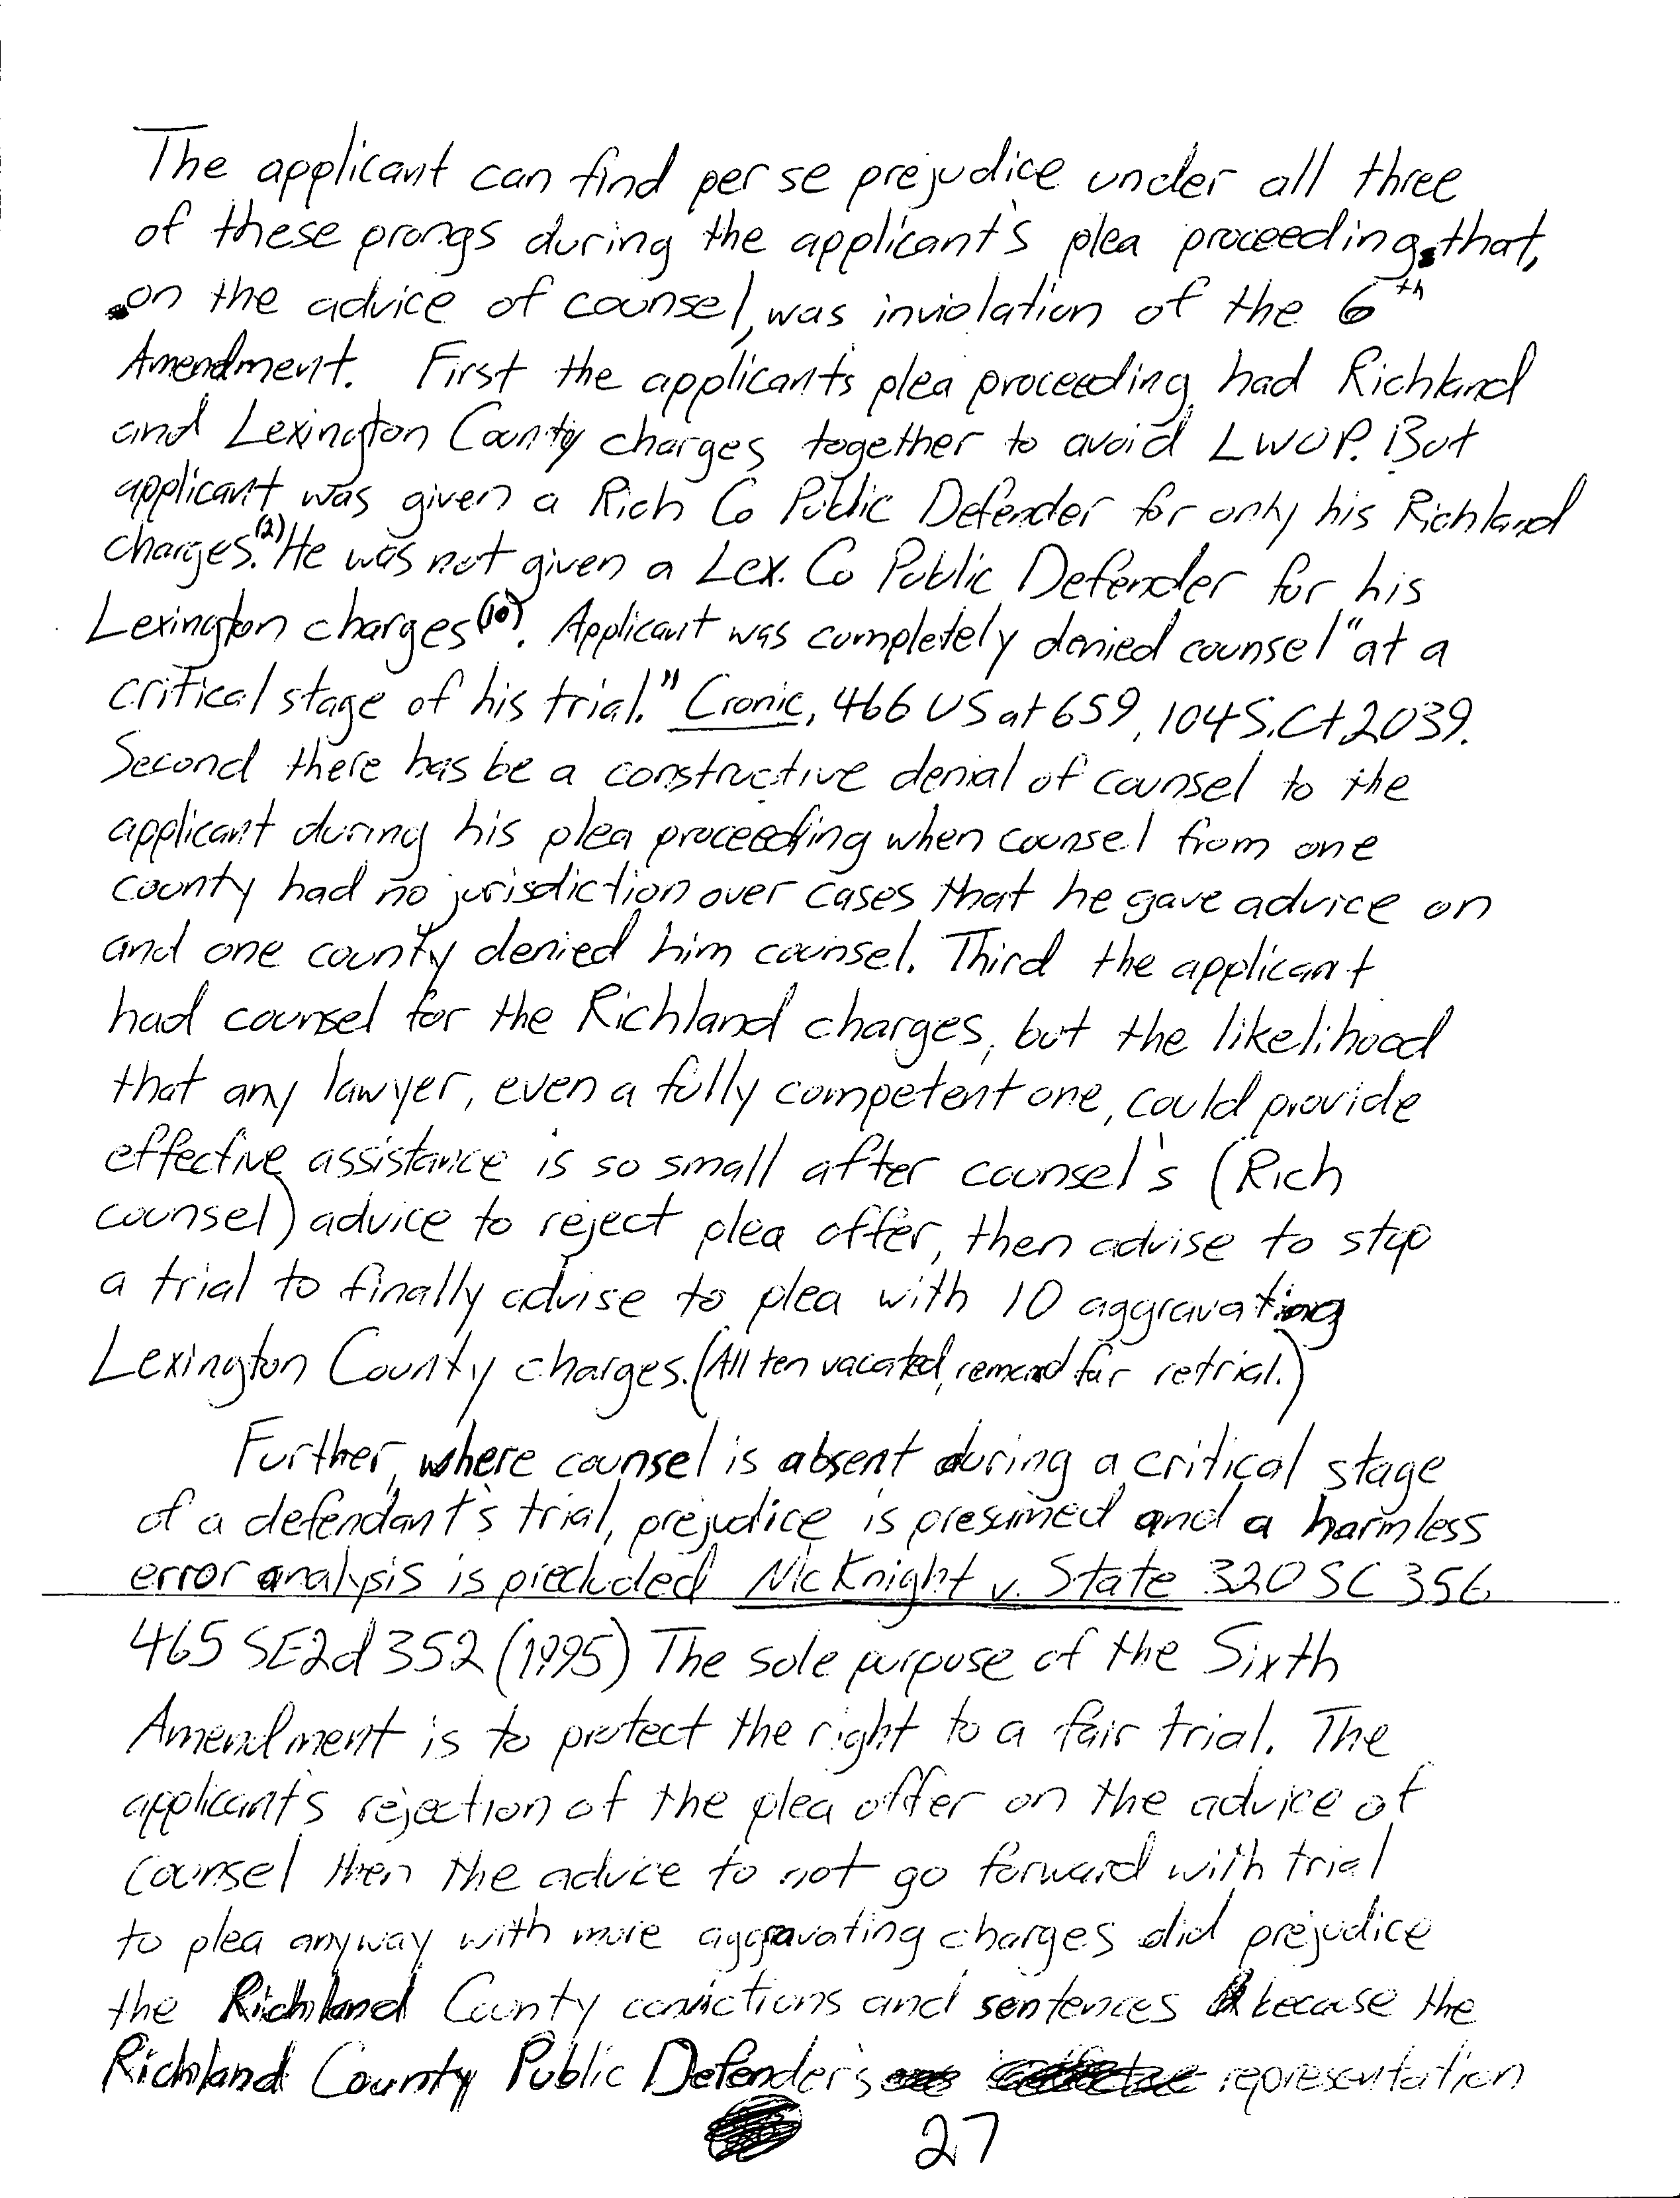 The applicant can find per se prejudice under all three
of these prongs during the applicant's plea proceeding that,
on the advice of counsel, was inviolation of the 6th
Amendment. First the applicants plea proceeding had Richland
and Lexington County charges together to avoid LWOP. But
applicant was given a Rich Co Public Defender for only his Richland
charges.(2) He was not given a Lex. Co Public Defender for his
Lexington charges(10). Applicant was completely denied counsel "at a
critical stage of his trial." Cronic, 466 US at 659, 104 S.Ct 2039.
Second there has be a constructive denial of counsel to the
applicant during his plea proceeding when counsel from one
county had no jurisdiction over cases that he gave advice on
and one county denied him counsel. Third the applicant
had counsel for the Richland charges, but the likelihood
that any lawyer, even a fully competent one, could provide
effective assistance is so small after counsel's (Rich
counsel) advice to reject plea offer, then advise to stop
a trial to finally advise to plea with 10 aggravating
Lexington County charges. (All ten vacated, remand for retrial.)
Further, where counsel is absent during a critical stage
of a defendant's trial, prejudice is presumed and a harmless
error analysis is precluded McKnight v. State 320 SC 356
465 SE2d 352 (1995) The sole purpose of the Sixth
Amendment is to protect the right to a fair trial. The
applicant's rejection of the plea offer on the advice of
counsel then the advice to not go forward with trial
to plea anyway with more aggravating charges did prejudice
the Richland County convictions and sentences because the
Richland County Public Defender's representation
27